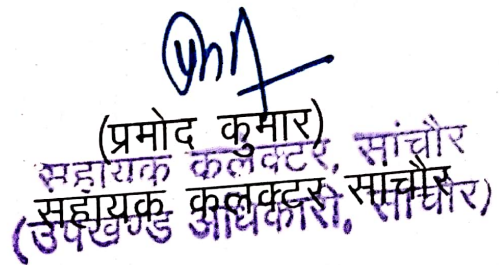 (प्रमोद कुमार)
सहायक कलक्टर, सांचौर
सहायक कलक्टर साचौर
(उपखण्ड अधिकारी, सांचौर)